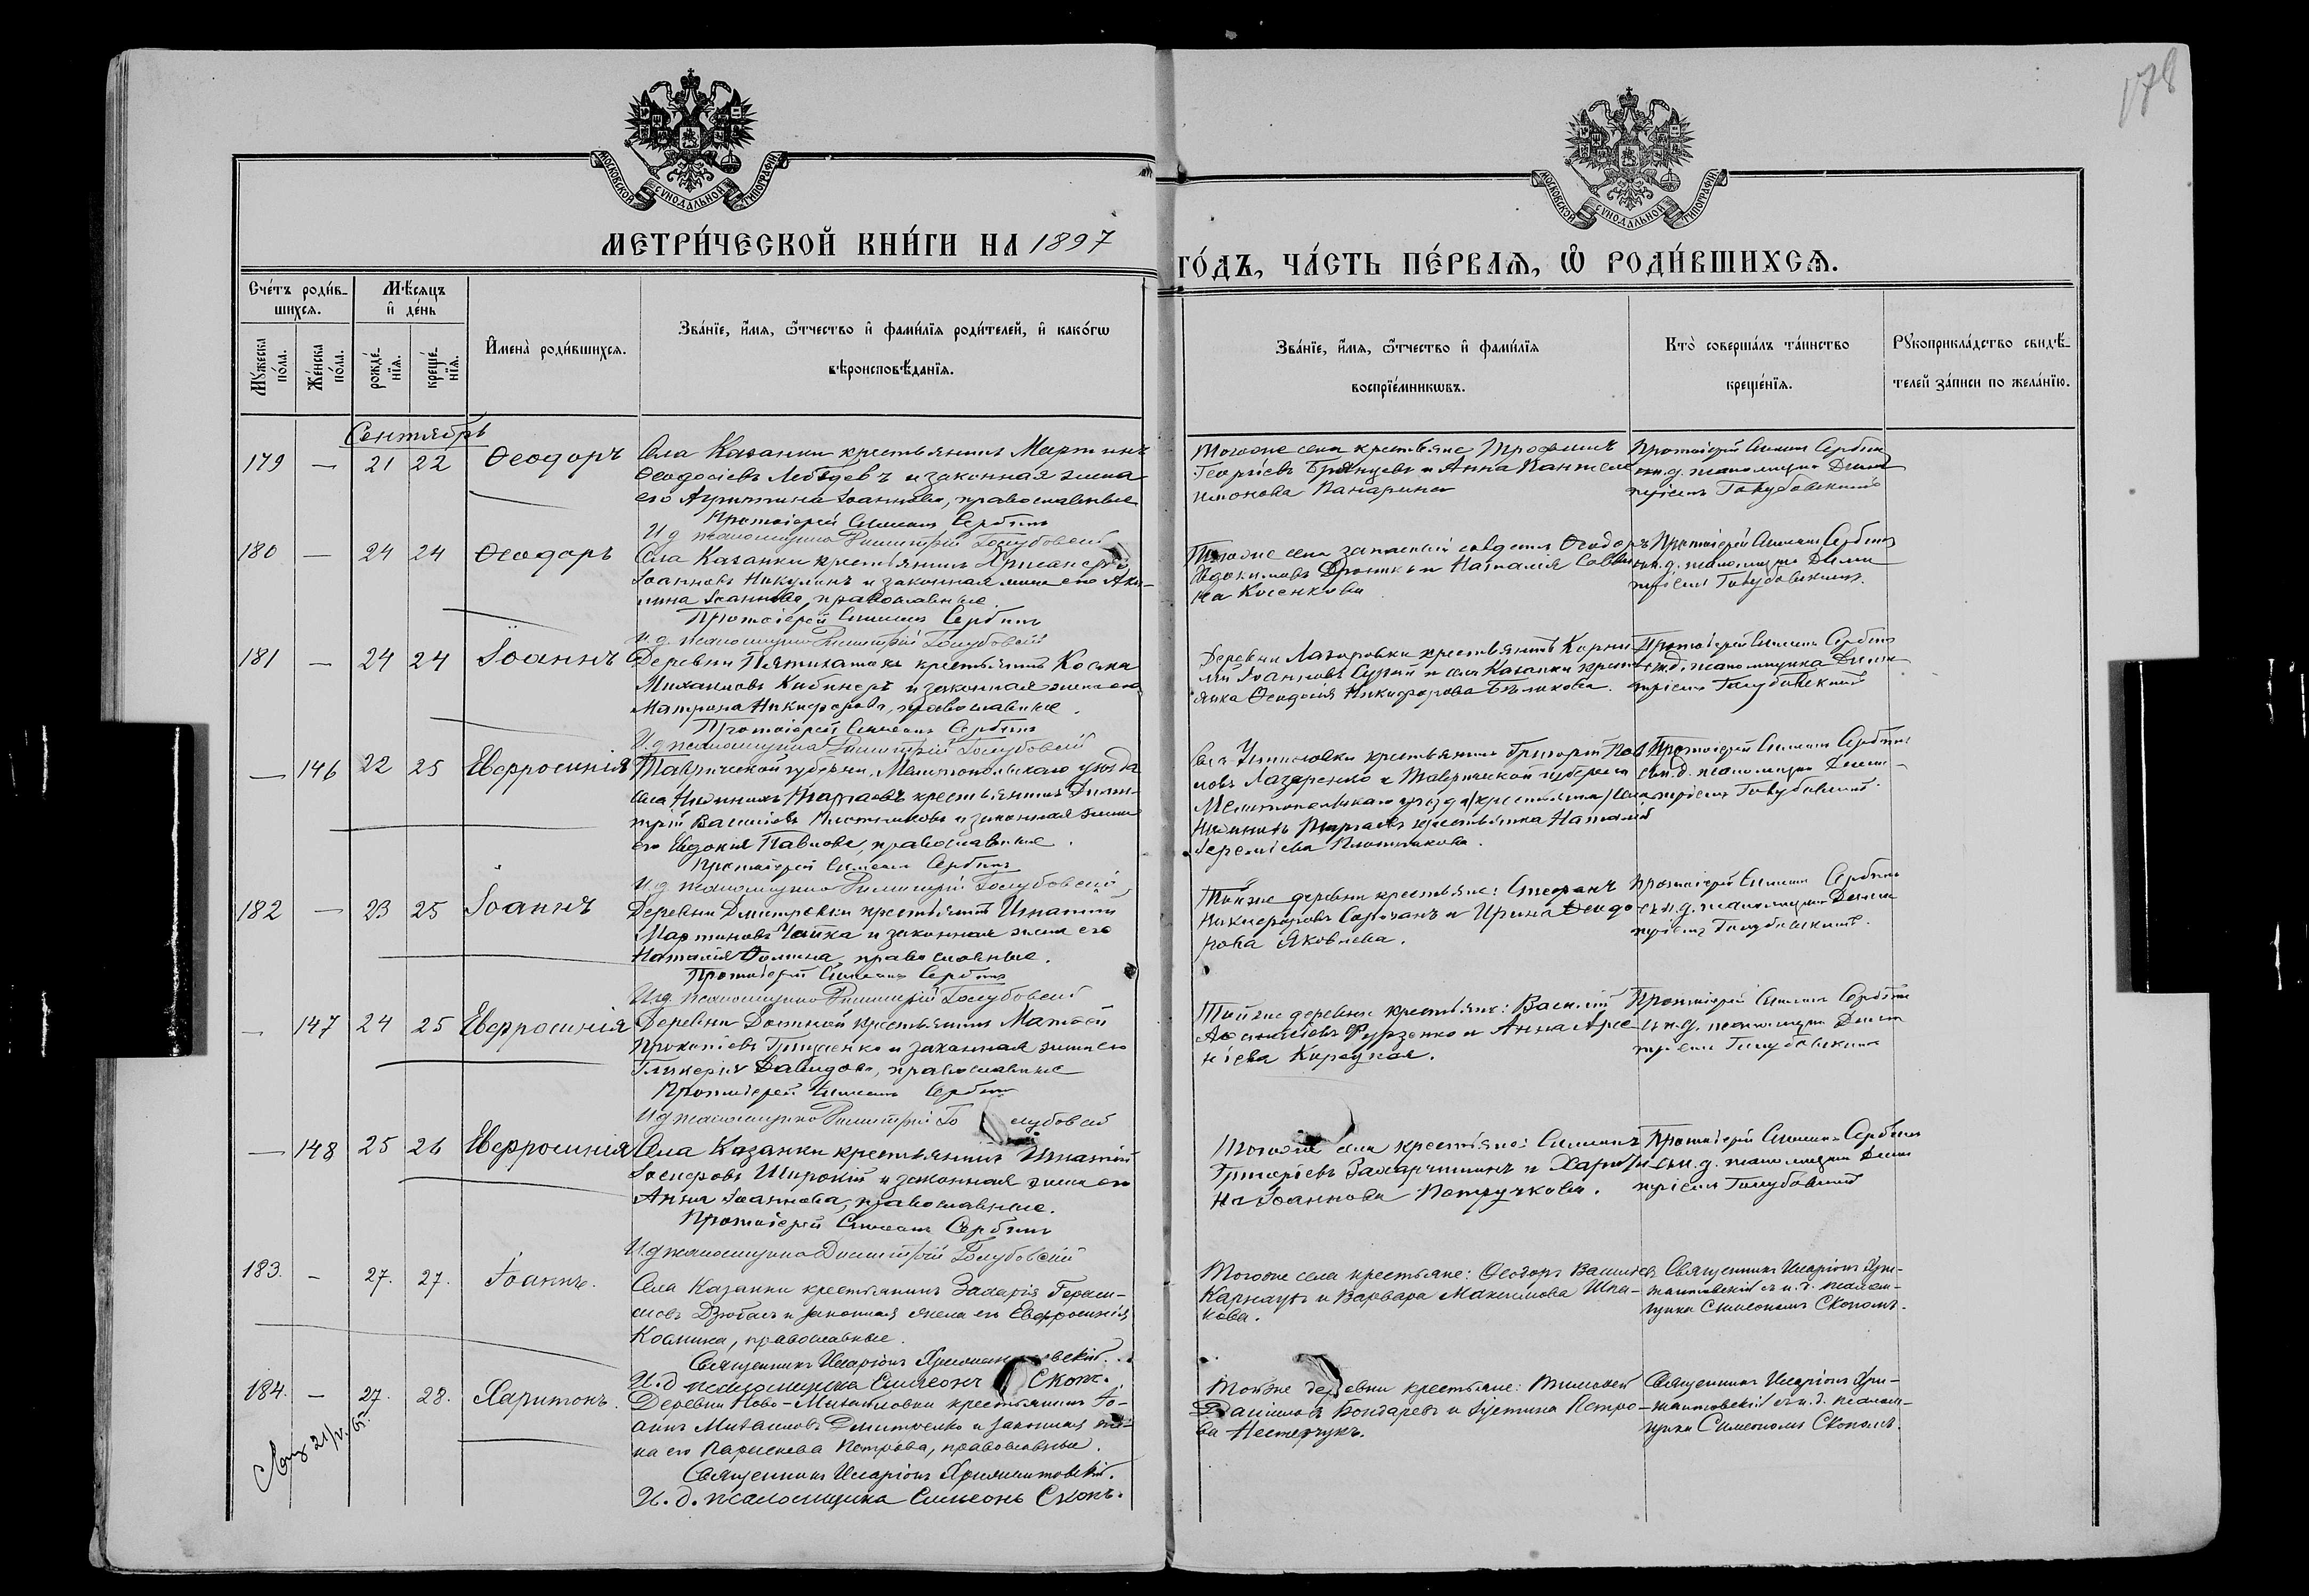 178
МОСКОВСКОЙ СУНОДАЛЬНОЙ ТИПОГРАФІИ
МОСКОВСКОЙ СУНОДАЛЬНОЙ ТИПОГРАФІИ
МЕТРИ́ЧЕСКОЙ КНИ́ГИ НА 1897
ГО́ДЪ, ЧА́СТЬ ПЕ́РВАѦ, Ѡ РОДИ́ВШИХСѦ.
Сче́тъ роди́в-
шихсѧ.
Мꙋ́жеска по́ла.
Же́нска по́ла.
Мѣ́сѧцъ
и҆ де́нь
рожде́-
нїѧ.
креще́-
нїѧ.
И҆мена̀ роди́вшихсѧ.
Зва́нїе, и҆́мѧ, ѻ҆́тчество и҆ фами́лїѧ роди́телей, и҆ како́гѡ
вѣроисповѣ́данїѧ.
Зва́нїе, и҆́мѧ, ѻ҆́тчество и҆ фами́лїѧ
воспрїе́мникѡвъ.
Кто̀ соверша́лъ та́инство
креще́нїѧ.
Рꙋкоприкла́дство свидѣ́-
телей за́писи по жела́нїю.
Сентябрь
179 — 21 22 Ѳеодоръ
Села Казанки крестьянинъ Мартинъ
Ѳеодосіевъ Лебедевъ и законная жена
его Агрипина Іоаннова, православные
Протоіерей Симеонъ Сербинъ
И.д. псаломщика Димитрій Голубовскій
Тогоже села крестьяне Трофимъ
Георгіевъ Брянцевъ и Анна Пантеле
имонова Панарина
Протоіерей Симеонъ Сербинъ
съ и.д. псаломщика Дими
тріемъ Голубовскимъ
180 — 24 24 Ѳеодоръ
Села Казанки крестьянинъ
Іоанновъ Никулинъ и законная жена его Аки-
лина Іоаннова, православные.
Протоіерей Симеонъ Сербинъ
И.д. псаломщика Димитрій Голубовскій
Тогоже села запасный Ѳеодоръ
Евдокимовъ и Наталія Савви
на Косенкова
Протоіерей Симеонъ Сербинъ
съ и.д. псаломщика Дими
тріемъ Голубовскимъ.
181 — 24 24 Іоаннъ
Деревни Пятихатокъ крестьянинъ Косма
Михаиловъ и законная жена его
Матрона Никифорова, православные.
Протоіерей Симеонъ Сербинъ
И.д. псаломщика Димитрій Голубовскій
Деревни Лазаровки крестьянинъ Корни
лій Іоанновъ и села Казанки кресть
янка Ѳеодосія Никифорова Бѣликова.
Протоіерей Симеонъ Сербинъ
съ и.д. псаломщика Дими
тріемъ Голубовскимъ
— 146 22 25 Евфросинія
Таврической губерніи, Мелитопольскаго уѣзда
села крестьянинъ Дими-
трій Васильевъ Плотниковъ и законная жена
его Евдокія Павлова, православные.
Протоіерей Симеонъ Сербинъ
И.д. псаломщика Димитрій Голубовскій
Села крестьянинъ Григорій Пав
ловъ Лазаренко и Таврической губерніи
Мелитопольскаго уѣзда
крестьянка Наталія
Іереміева Плотникова.
Протоіерей Симеонъ Сербинъ
съ и.д. псаломщика Дими-
тріемъ Голубовскимъ.
182 — 23 25 Іоаннъ
Деревни Дмитровки крестьянинъ Игнатій
Мартиновъ Чайка и законная жена его
Наталія Ѳомина, православные.
Протоіерей Симеонъ Сербинъ
И.д. псаломщика Димитрій Голубовскій
Тойже деревни крестьяне: Стефанъ
Никифоровъ Сорочанъ и Ирина Ѳеодо
рова Яковлева.
Протоіерей Симеонъ Сербинъ
съ и.д. псаломщика Дими
тріемъ Голубовскимъ.
— 147 24 25 Евфросинія
Деревни крестьянинъ Матѳей
Прокопіевъ Грищенко и законная жена его
Гликерія Давидова, православные
Протоіерей Симеонъ Сербинъ
И.д. псаломщика Димитрій Голубовскій
Тойже деревни крестьяне: Василій
Аѳанасіевъ Фурзенко и Анна Арсе-
ніева
Протоіерей Симеонъ Сербинъ
съ и.д. псаломщика Дими
тріемъ Голубовскимъ
— 148 25 26 Евфросинія
Села Казанки крестьянинъ Игнатій
Іосифовъ Широкій и законная жена его
Анна Іоаннова, православные.
Протоіерей Симеонъ Сербинъ
И.д. псаломщика Димитрій Голубовскій
Тогоже села крестьяне: Симеонъ
Григоріевъ и Харити
на Іоаннова
Протоіерей Симеонъ Сербинъ
съ и.д. псаломщика Дими
тріемъ Голубовскимъ
183. — 27. 27. Іоаннъ.
Села Казанки крестьянинъ Захарія Гераси-
мовъ и законная жена его Евфросинія
Космина, православные.
Священникъ Иларіонъ
И.д. псаломщика Симеонъ Скопъ.
Тогоже села крестьяне: Ѳеодоръ Васильевъ
Карнаухъ и Варвара Максимова Шпа-
кова.
Священникъ Иларіонъ Хри-
съ и.д. псалом-
щика Симеономъ Скопомъ.
184. — 27. 28. Харитонъ.
Деревни Ново-Михайловки крестьянинъ Іо-
аннъ Михаиловъ Дмитренко и законная же-
на его Параскева Петрова, православные.
Священникъ Иларіонъ
И.д. псаломщика Симеонъ Скопъ.
Тойже деревни крестьяне: Тимоѳей
Даніиловъ Бондаревъ и Іустина Петро-
ва Нестерчукъ.
Священникъ Иларіонъ Хри-
съ и.д. псалом-
щика Симеономъ Скопомъ.